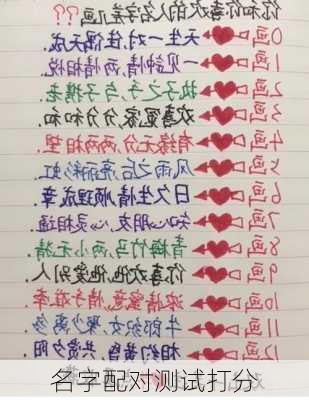 你和你喜欢的人名字差几画??
0画 天生一对,佳偶天成.
1画 一见钟情,两情相悦.
2画 执子之手,与子携老.
3画 欢喜冤家,分分和和.
4画 有缘无分,两两相望.
5画 风雨之后,亮丽彩虹
6画 日久生情,顺理成章
7画 知心朋友,心灵相通
8画 青梅竹马,两小无猜
9画 你喜欢他,他爱别人
10画 浓情蜜意,
11画 牛郎织女,聚少离多
12画 相约黄昏,共赏夕阳
名字配对测试打分